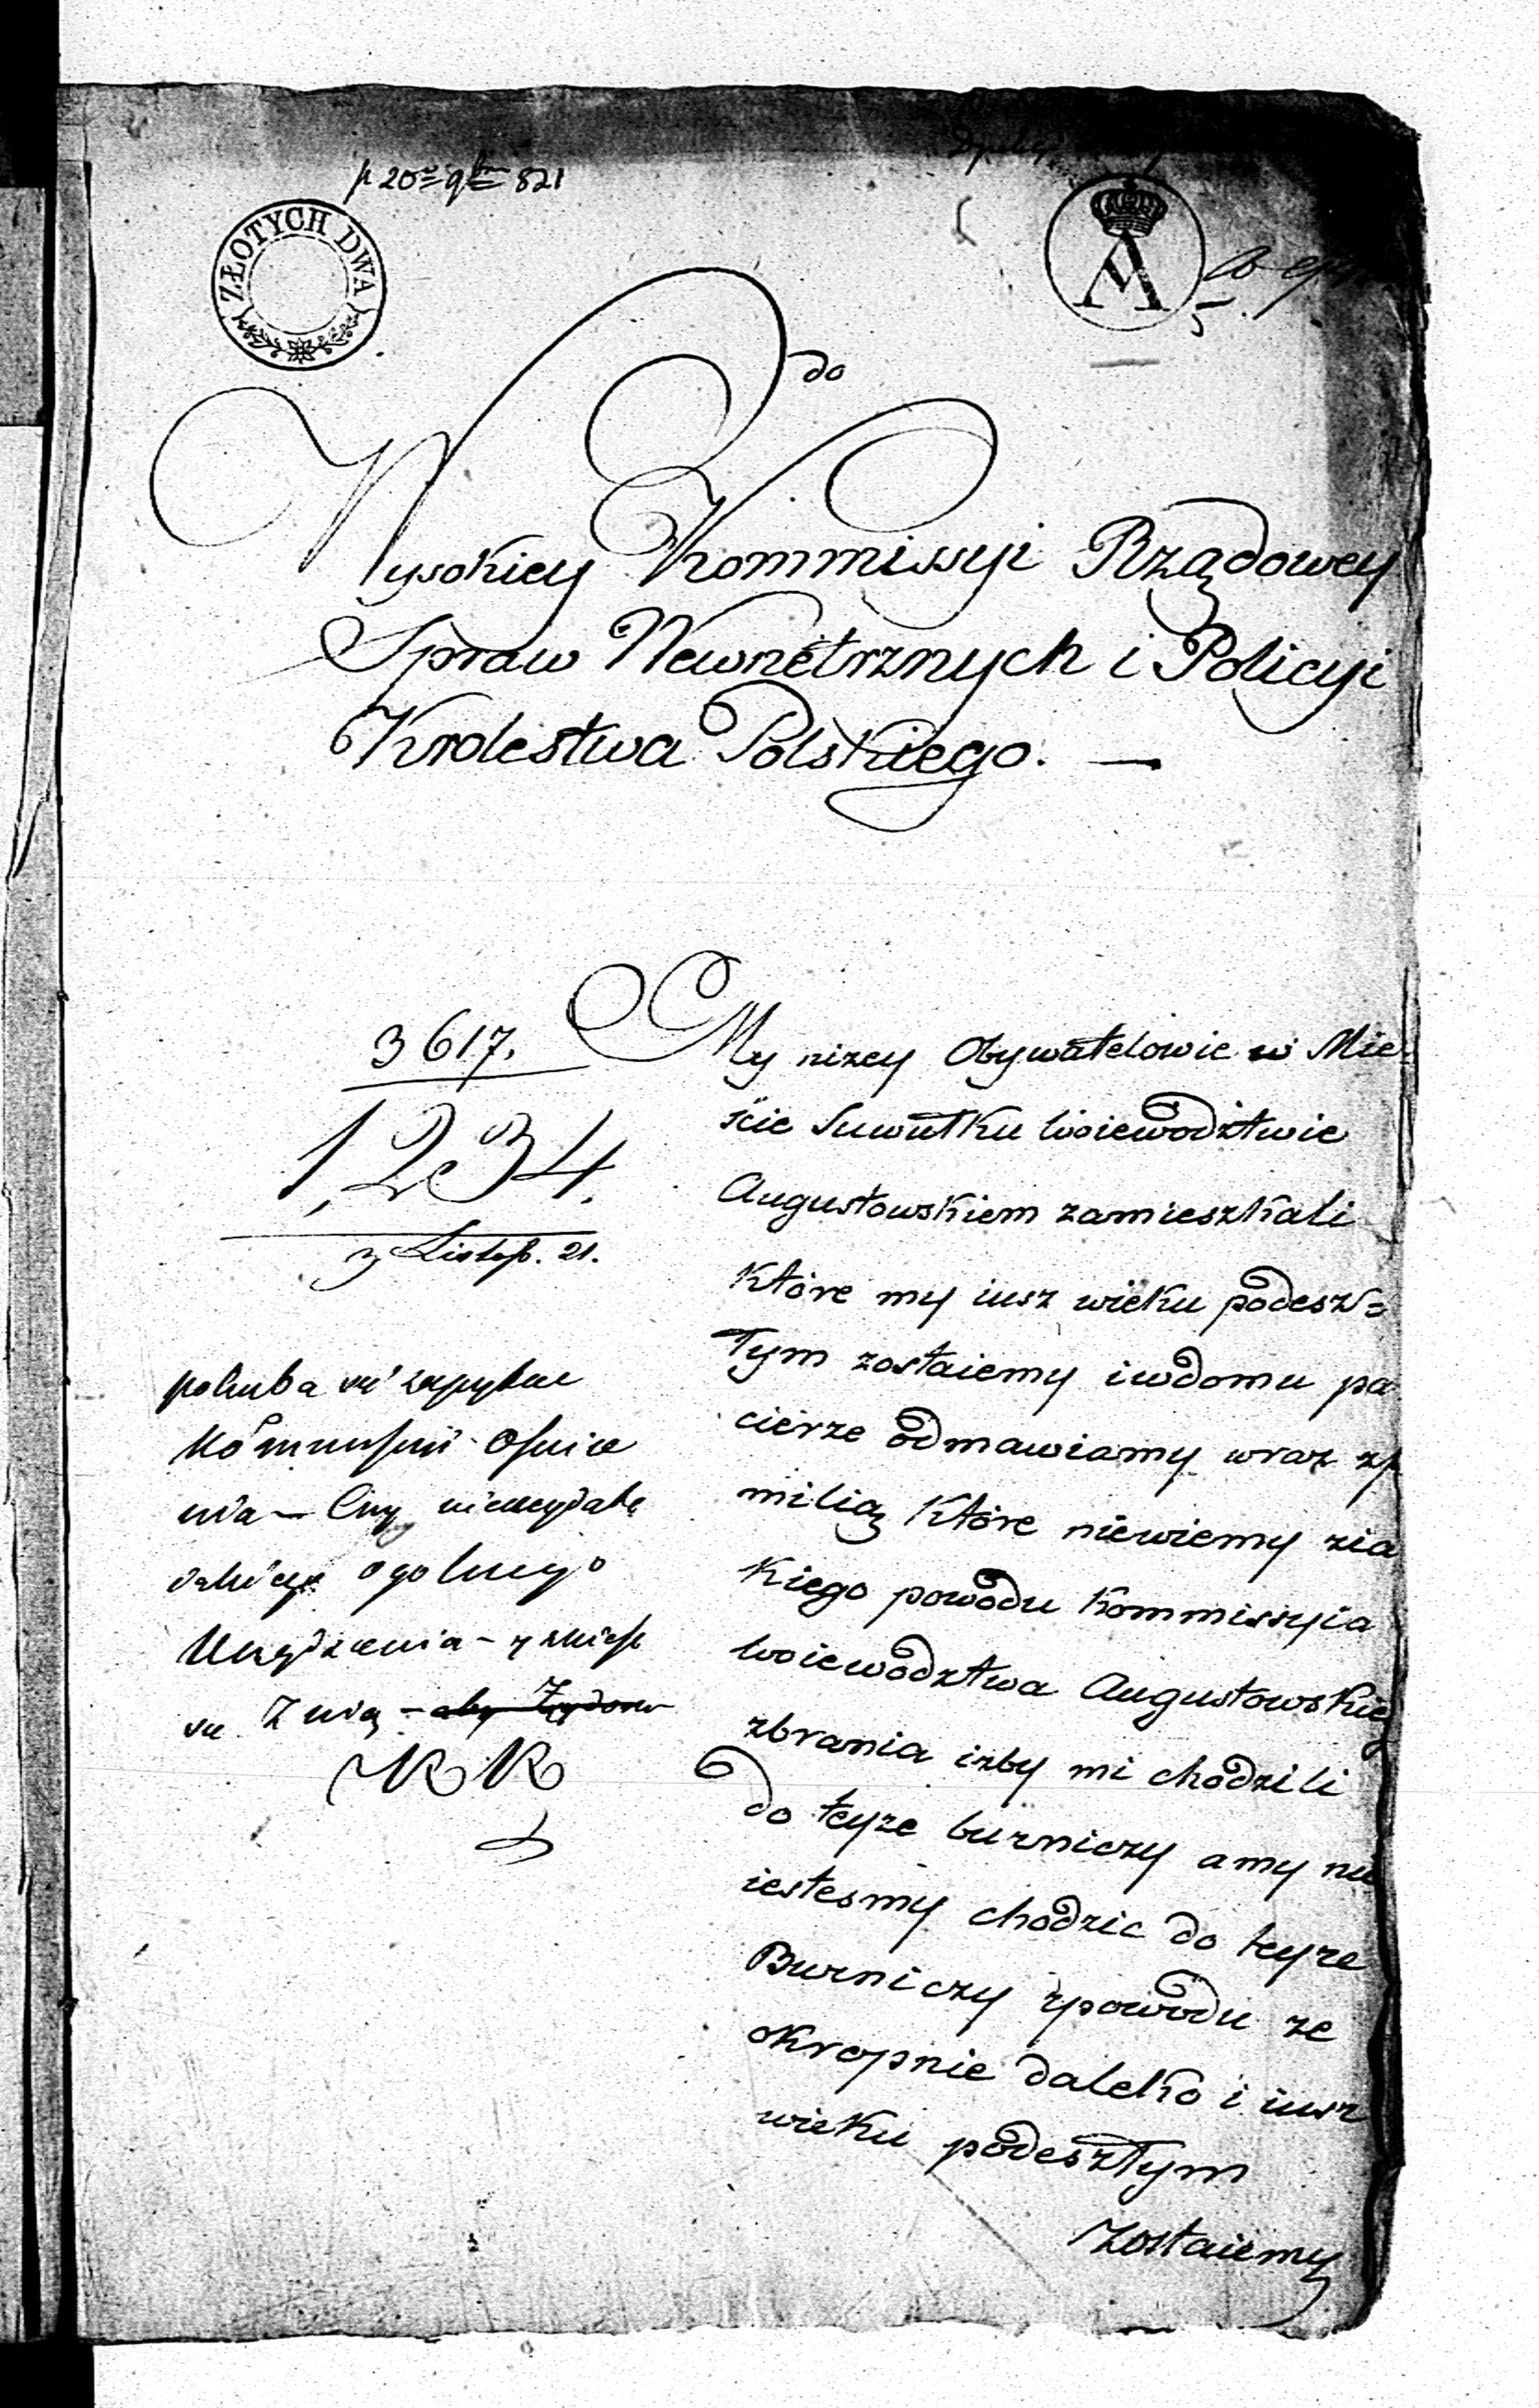 p 20 9 821
ZŁOTYCH DWA
A
5.
do
Wysokiey Kommissyi Rządowey
Spraw Wewnętrznych i Policyi
Krolestwa Polskiego. —
3617.
1,234.
3 Listop. 21.
My nizey Obywatelowie w Mie=
scie Suwałku woiewodztwie
Augustowskiem zamieszkali
Które my iusz wieku podesz=
łym zostaiemy iwdomu pa
cierze odmawiamy wraz zf
milią Które niewiemy zia
Kiego powodu Kommissyia
woiewodztwa Augustowskieg
zbrania izby mi chodzili
do teyze burniczy amy nie
iestesmy chodzic do teyze
Burniczy zpowodu ze
okropnie daleko i iusz
wieku podeszłym
zostaiemy
ogolnego
Urządzenia –
– aby Żydow